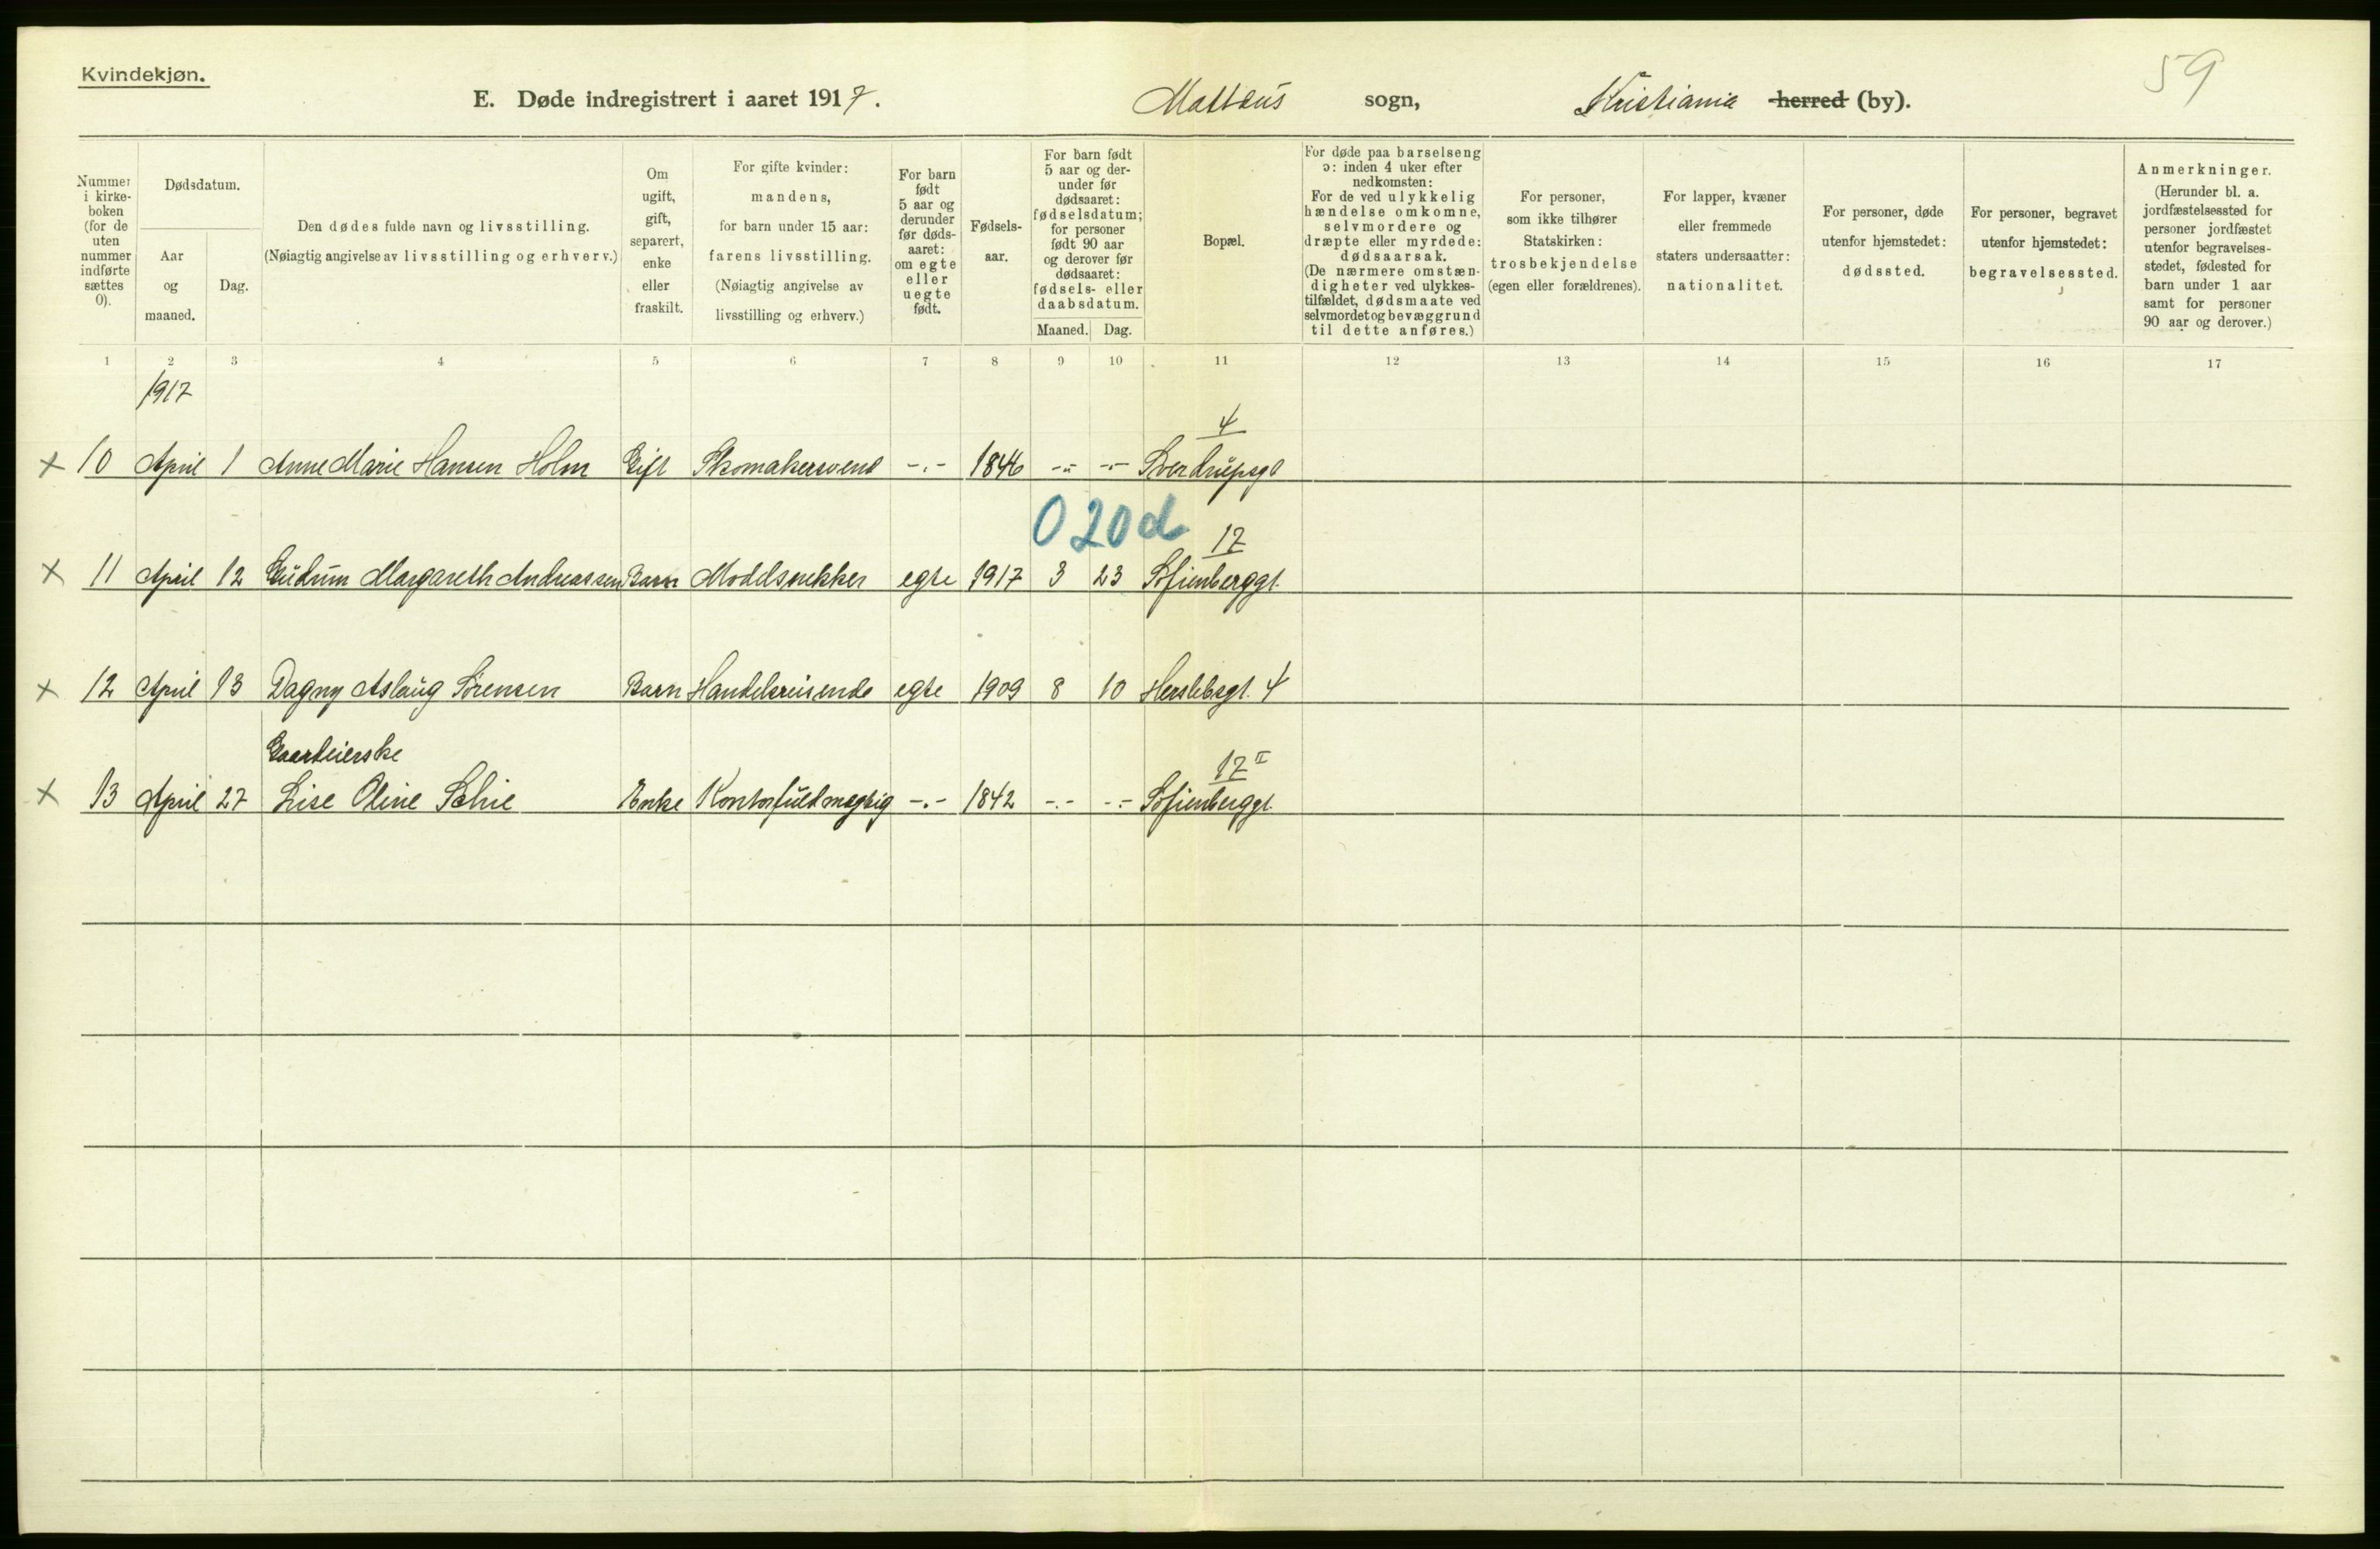 Kvindekjøn.
59
E. Døde indregistrert i aaret 1917. Matteus sogn, Kristiania herred (by).
Nummer i kirke-boken (for de uten nummer indførte sættes 0).
Dødsdatum.
Aar og maaned.
Dag.
Den dødes fulde navn og livsstilling.
(Nøiagtig angivelse av livsstilling og erhverv.)
Om ugift, gift, separert, enke eller fraskilt.
For gifte kvinder: mandens, for barn under 15 aar: farens livsstilling.
(Nøiagtig angivelse av livsstilling og erhverv.)
For barn født 5 aar og derunder før døds-aaret: om egte eller uegte født.
Fødsels-aar.
For barn født 5 aar og der-under før dødsaaret: fødselsdatum; for personer født 90 aar og derover før dødsaaret: fødsels- eller daabsdatum.
Maaned. Dag.
Bopæl.
For døde paa barselseng ɔ: inden 4 uker efter nedkomsten: For de ved ulykkelig hændelse omkomne, selvmordere og dræpte eller myrdede: dødsaarsak.
(De nærmere omstæn-digheter ved ulykkes-tilfældet, dødsmaate ved selvmordet og bevæggrund til dette anføres.)
For personer, som ikke tilhører Statskirken: trosbekjendelse (egen eller forældrenes).
For lapper, kvæner eller fremmede staters undersaatter: nationalitet.
For personer, døde utenfor hjemstedet: dødssted.
For personer, begravet utenfor hjemstedet: begravelsessted.
Anmerkninger.
(Herunder bl. a. jordfæstelsessted for personer jordfæstet utenfor begravelses-stedet, fødested for barn under 1 aar samt for personer 90 aar og derover.)
1 2 3 4 5 6 7 8 9 10 11 12 13 14 15 16 17
1917
4
× 10 April 1 Anne Marie Hansen Holm Gift Skomakersvend -.- 1846 -.- -.- Sverdrupsgt
0 20 d
17
× 11 April 12 Gudrun Margareth Andreassen Barn Modelsnekker egte 1917 3 23 Sofienberggt.
× 12 April 13 Dagny Aslaug Sørensen Barn Handelsreisende egte 1909 8 10 Herslebsgt. 4
Gaardeierske
17 II
× 13 April 27 Lise Oline Enke Kontorfuldmægtig -.- 1842 -.- -.- Sofienberggt.